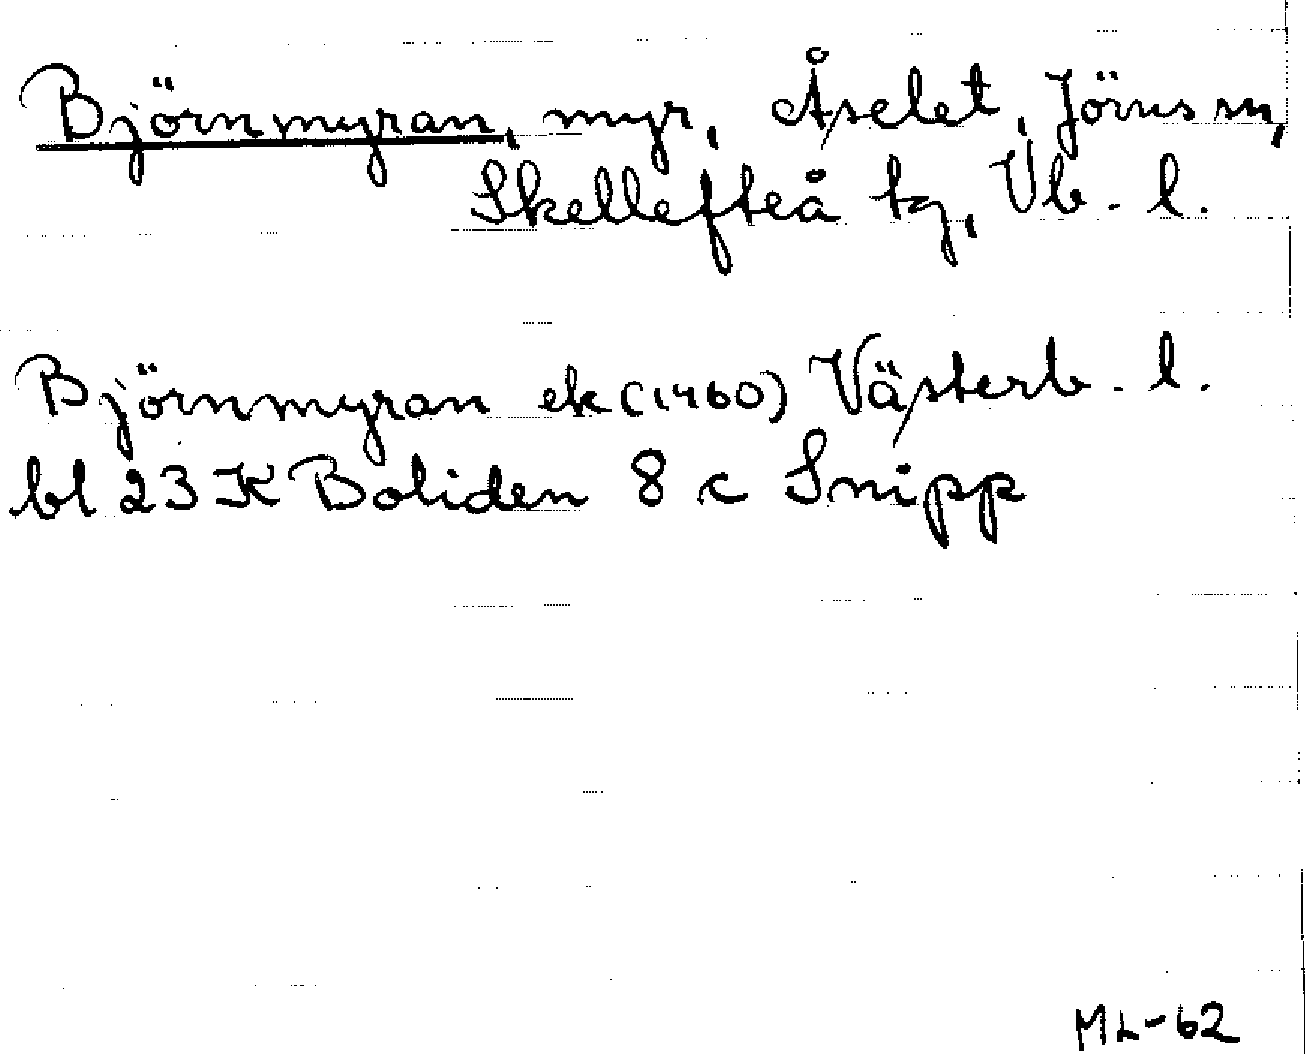 Björnmyran, myr, Åselet, Jörns sn,
Skellefteå tg, Vb. l.
Björnmyran ek (1460) Västerb. l.
bl 23 K Boliden 8 c Snipp
ML-62